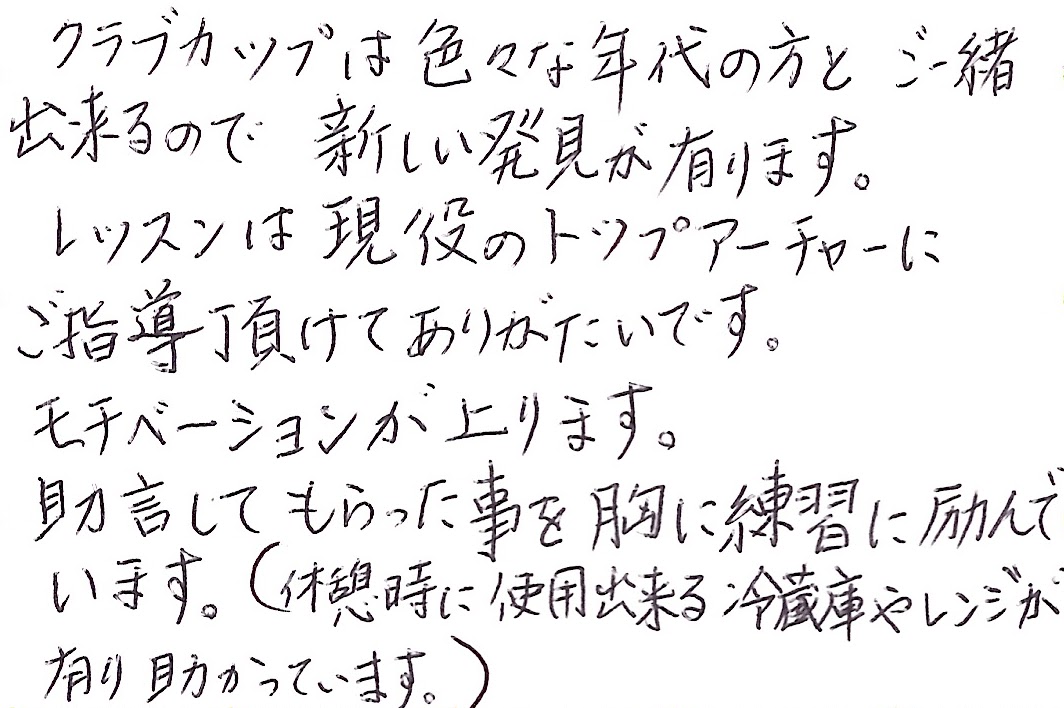 クラブカップは色々な年代の方と ご一緒
出来るので 新しい発見が有ります。
レッスンは現役のトップアーチャーに
ご指導頂けてありがたいです。
モチベーションが上ります。
助言してもらった事を胸に練習に励んで
います。(休憩時に使用出来る冷蔵庫やレンジが
有り助かっています。)